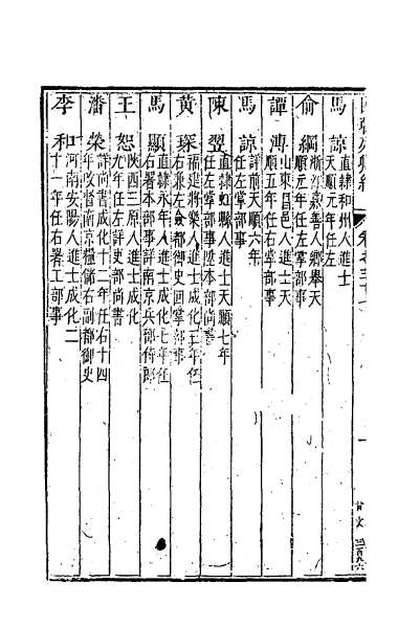 馬諒直隸和州人進士
天順元年任左
俞綱浙江嘉善人鄉舉天
順元年任左掌部事
譚溥山東昌邑人進士天
順五年任右掌部事
馬諒詳前天順六年
任左掌部事
陳翌直隸虹縣人進士天順七年
任左掌部事陞本部尚書
黃琛福建將樂人進士成化二年任
右兼左僉都御史回掌部事
馬顯直隸永年人進士成化七年任
右署本部事詳南京兵部侍郎
王恕陝西三原人進士成化
九年任左詳吏部尚書
潘榮詳尚書成化十二年任右十四
年改督南京糧儲右副都御史
李和河南安陽人進士成化二
十一年任右署工部事